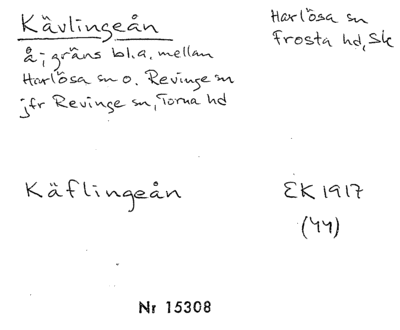 Kävlingeån
å; gräns bl.a. mellan
Harlösa sn o. Revinge sn
jfr Revinge sn, Torna hd
Harlösa sn
Frosta hd, Sk
Käflingeån
EK 1917
(44)
Nr 15308